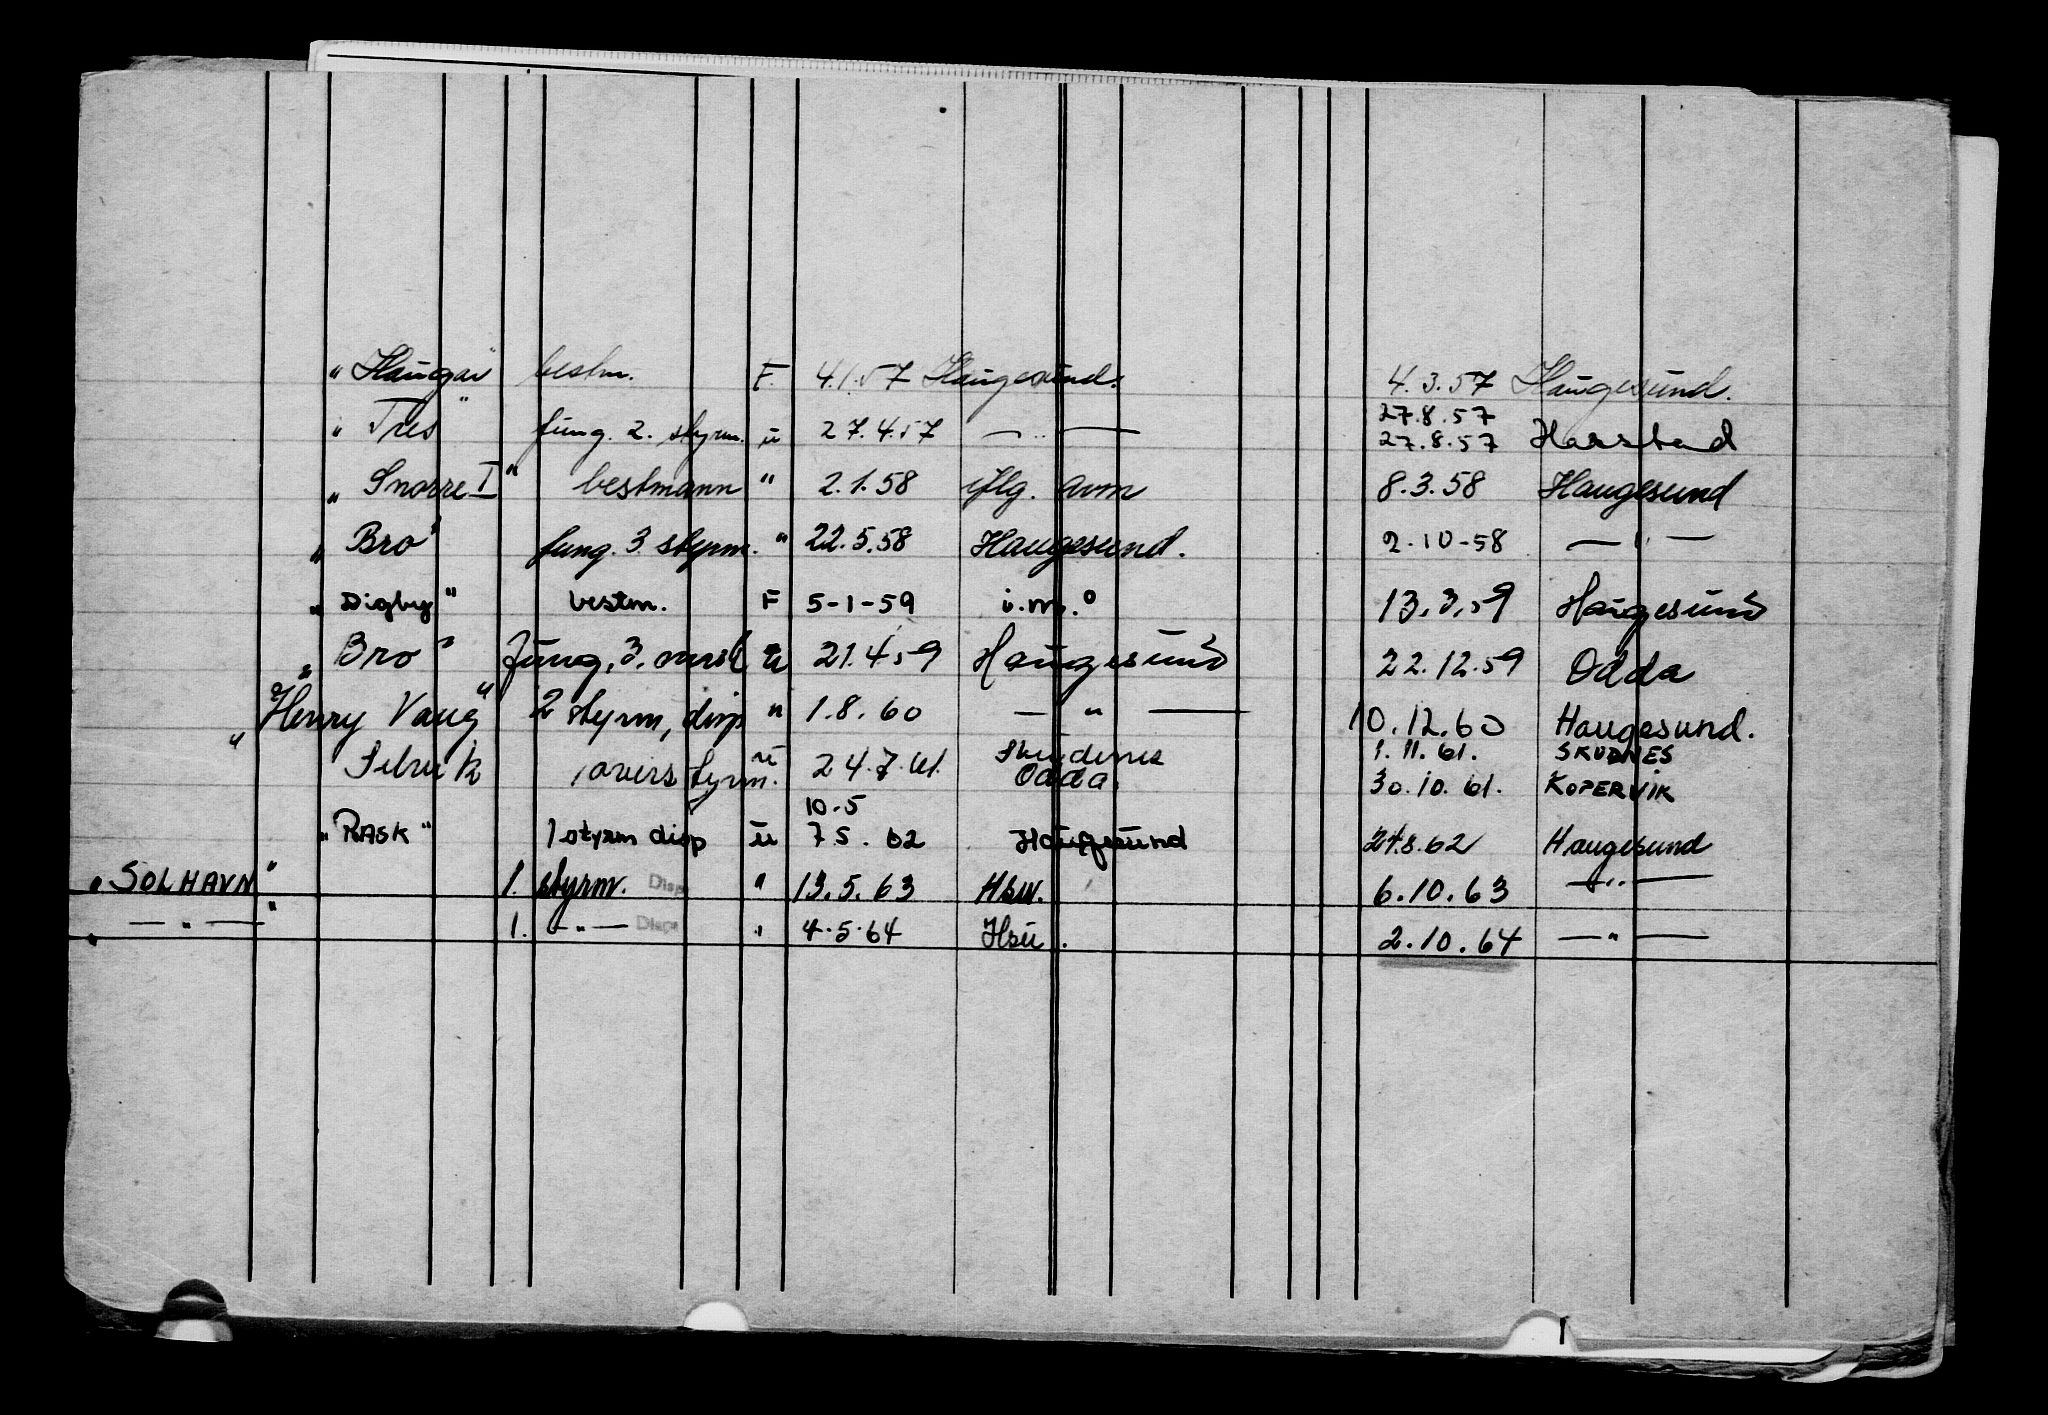 "Haugar" bestm. F. 4.1.57 Haugesund. 4.3.57 Haugesund.
27.8.57
"Tres" fung. 2. styrm. " 27.4.57 — " — 27.8.57 Harstad
"Snorre I" bestmann " 2.1.58 iflg. avm 8.3.58 Haugesund
"Bro" fung. 3 styrm. " 22.5.58 Haugesund. 2-10-58 — " —
"Digby" bestm. F 5-1-59 i.m.° 13.3.59 Haugesund
"Bro" Fung. 3. " 21.4.59 Haugesund 22.12.59 Odda
"Henry Vaug" 2 styrm, disp " 1.8.60 — " — 10.12.60 Haugesund.
Skudenes 1.11.61. SKUDNES
" 24.7.61. Odda. 30.10.61. KOPERVIK
10.5
"RASK" 1 styrm disp " 7 5.62 Haugesund 24.8.62 Haugesund
"SOLHAVN" 1. styrm. Disp " 13.5.63 Hsu. 6.10.63 — " —
" — " — " 1. — " — Disp " 4.5.64 Hsu. 2.10.64 — " —